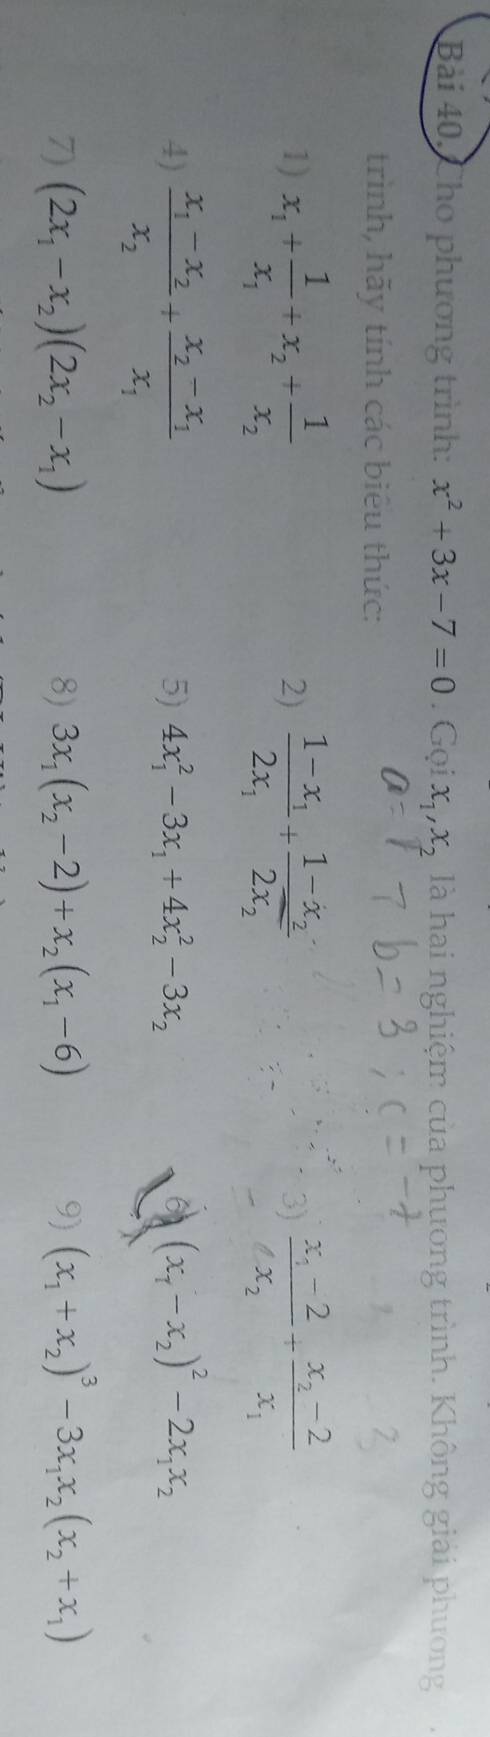 Bài 40. Cho phương trình: x² + 3x − 7 = 0. Gọi x₁, x₂ là hai nghiệm của phương trình. Không giải phương
trình, hãy tính các biểu thức:
a = 1 ; b = 3 ; c = -7
1) x₁ + 1/x₁ + x₂ + 1/x₂ 2) (1 − x₁)/(2x₁) + (1 − x₂)/(2x₂) 3) (x₁ − 2)/x₂ + (x₂ − 2)/x₁
4) (x₁ − x₂)/x₂ + (x₂ − x₁)/x₁ 5) 4x₁² − 3x₁ + 4x₂² − 3x₂ 6) (x₁ − x₂)² − 2x₁x₂
7) (2x₁ − x₂)(2x₂ − x₁) 8) 3x₁(x₂ − 2) + x₂(x₁ − 6) 9) (x₁ + x₂)³ − 3x₁x₂(x₂ + x₁)